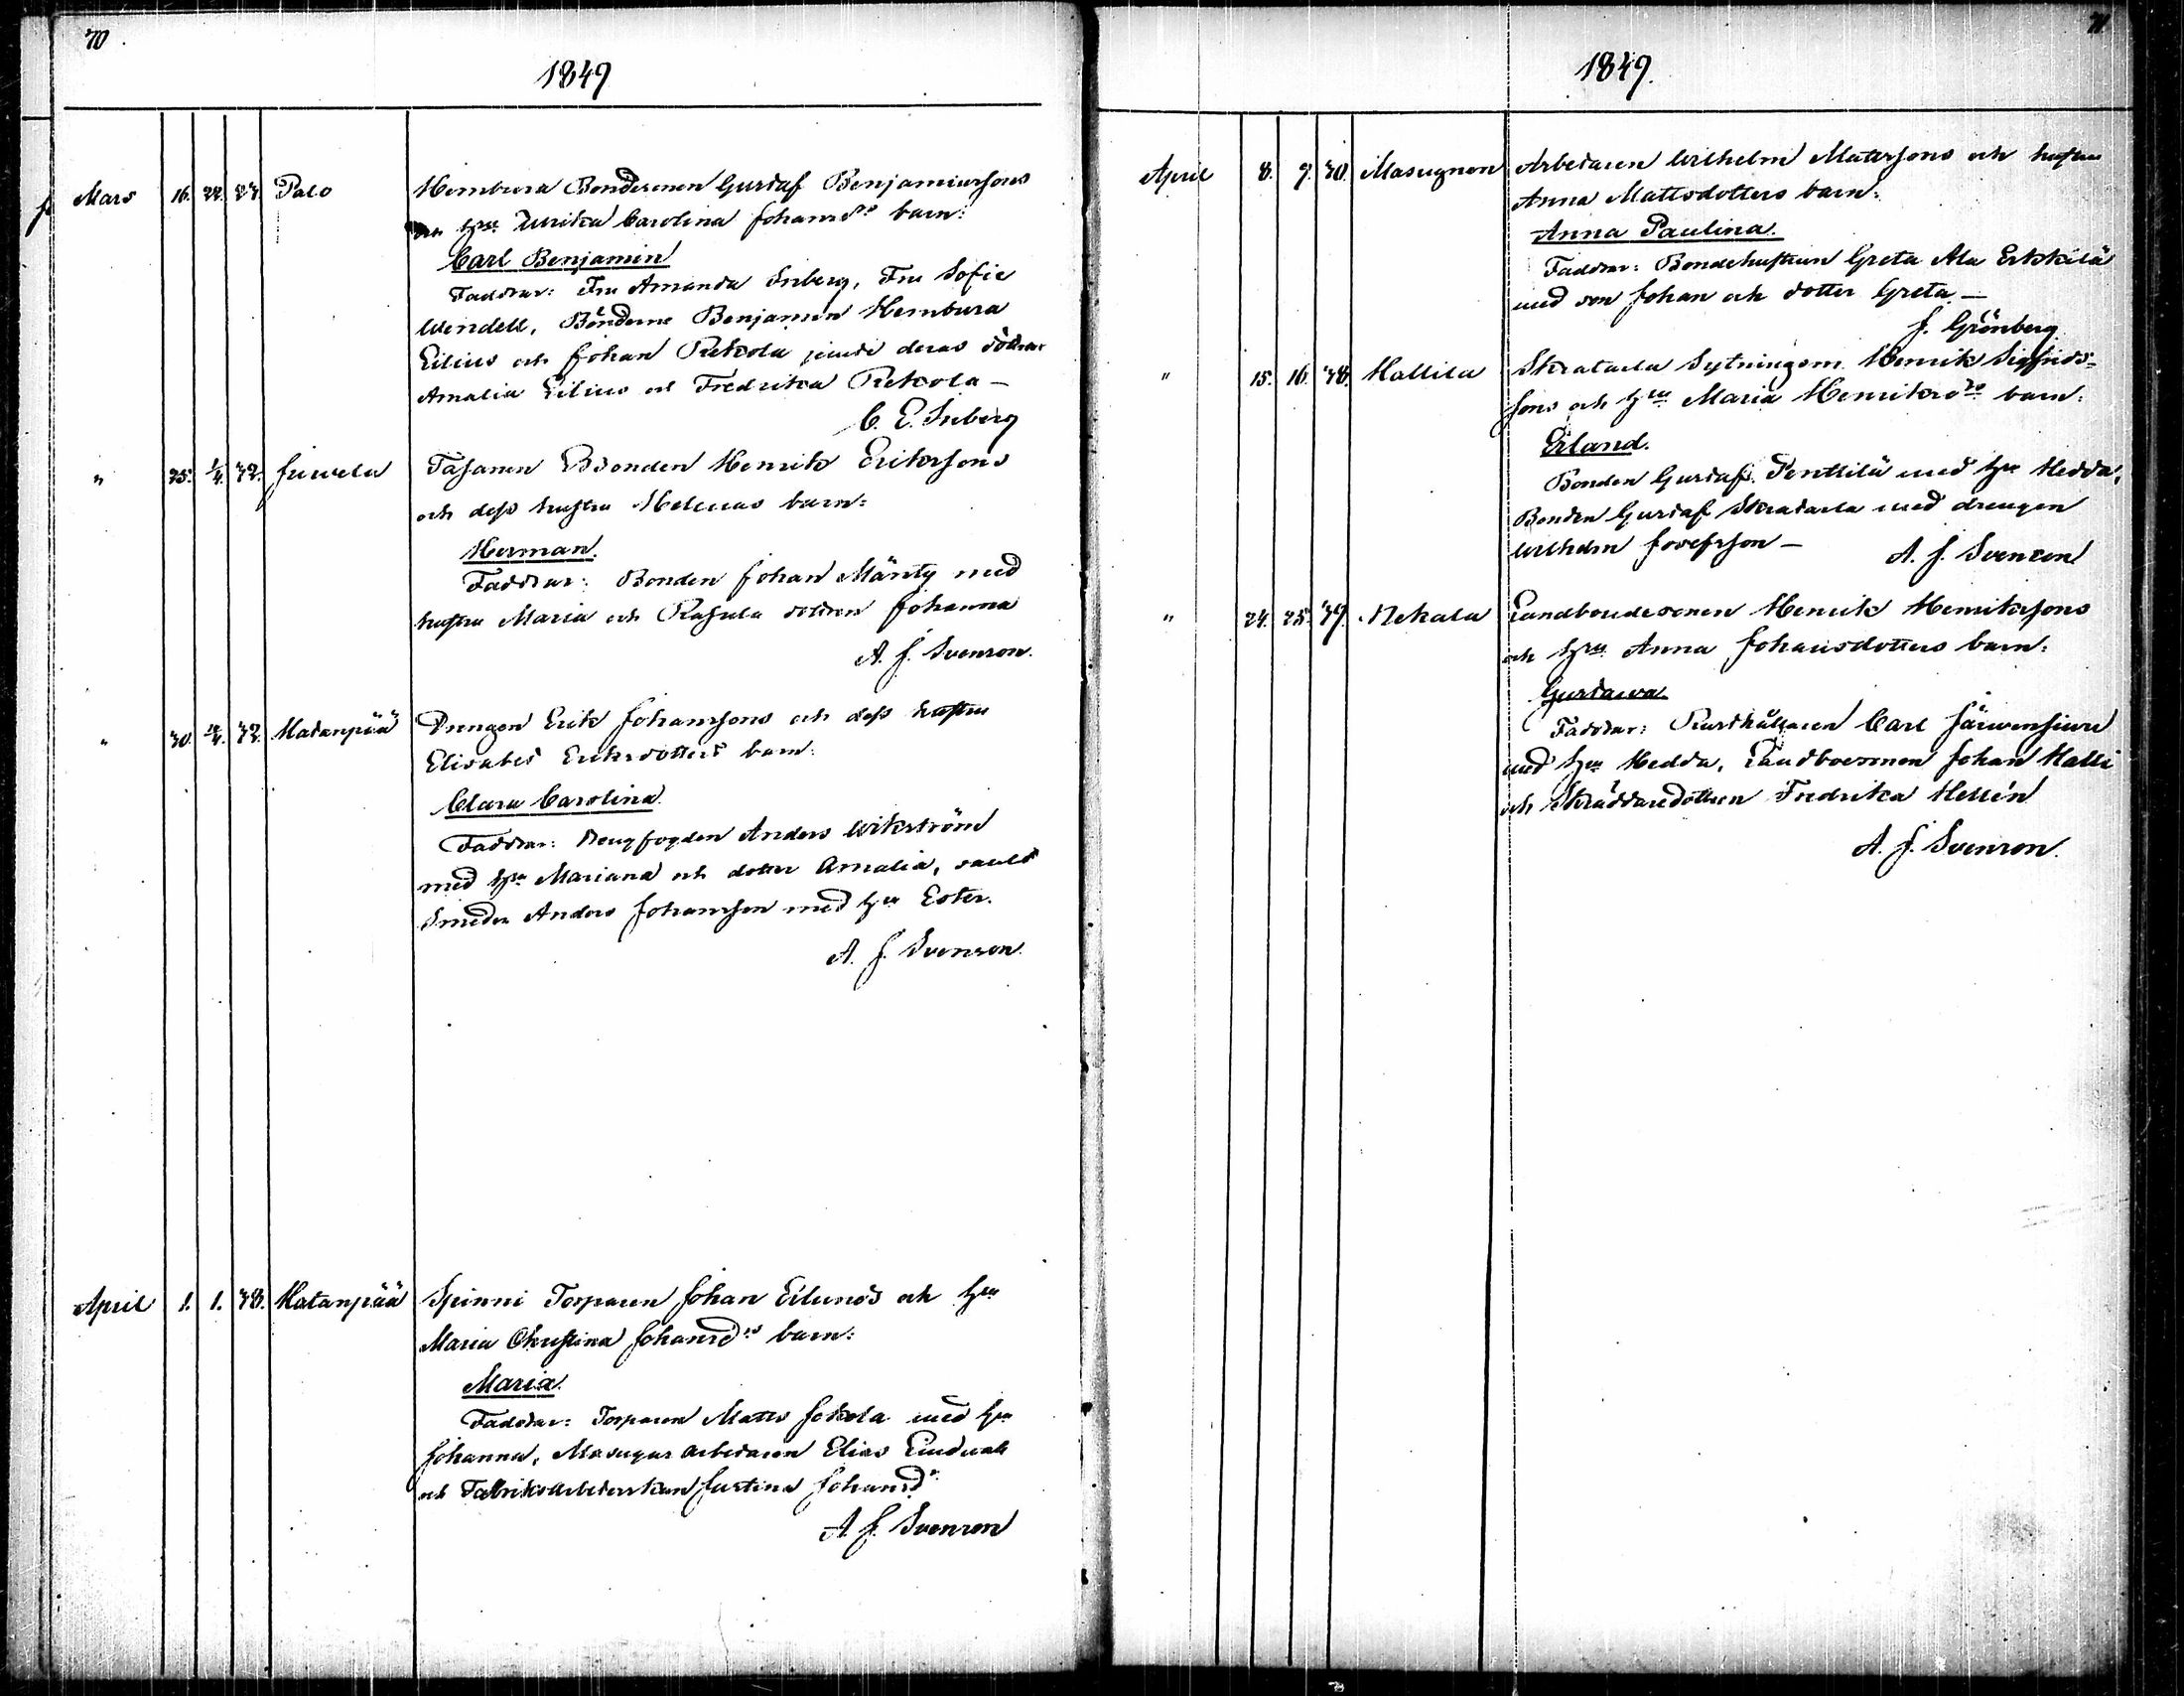 70
1849
Mars 16. 22. 27. Palo Hembura Bondesonen Gustaf Benjaminssons
och hru Ulrika Carolina Johansds barn:
Carl Benjamin
Faddrar: Fru Amanda Inberg, Fru Sofie
Wendell, Bönderne Benjamin Hembura
Eilius och Johan Rekola jemte deras döttrar
Amalia Eilius och Fredrika Rekola —
C. E. Inberg
" 25. 1/4. 32. Juvela Tasanen Bonden Henrik Erikssons
och dess hustru Helenas barn:
Herman.
Faddrar: Bonden Johan Mänty med
hustru Maria och Rasula Johanna
A. J. Svenson.
" 30. /4. 32. Hatanpää Drengen Erik Johanssons och dess hustru
Elisabet Eriksdotters barn:
Clara Carolina.
Faddrar: Anders Wikström
med hru Mariana och dotter Amalia, samt
Smeden Anders Johansson med hru Ester.
A. J. Svenson.
April 1. 1. 38. Hatanpää Spinni Torparen Johan Eilunds och hru
Maria Christina Johansds barn:
Maria.
Faddrar: Torparen Matts Jokela med hru
Johanna, Masugns arbetaren Elias Lindvall
och Fabriksarbeterskan Justina Johansdr
A. J. Svenson
71
1849.
April 8. 9. 30. Masugnen Arbetaren Wilhelm Matssons och hustru
Anna Mattsdotters barn:
Anna Paulina.
Faddrar: Bondehustrun Greta Ala Erkkilä
med son Johan och dotter Greta —
J. Grönberg
" 15. 16. 38. Hallila Skratarla Sytningsm. Henrik Sigfrids-
sons och hru Maria Henriksds barn:
Erland.
Bonden Gustaf Penttilä med hru Hedda,
Bonden Gustaf Skratarla med drengen
Wilhelm Josefsson — A. J. Svenson
" 24. 25. 39. Nekala Landbondesonen Henrik Henrikssons
och hru Anna Johansdotters barn:
Gustava.
Faddrar: Rusthållaren Carl Järvensivu
med hru Hedda, Landbosonen Johan Halli
och Skräddaredottren Fredrika Hellén
A. J. Svenson.